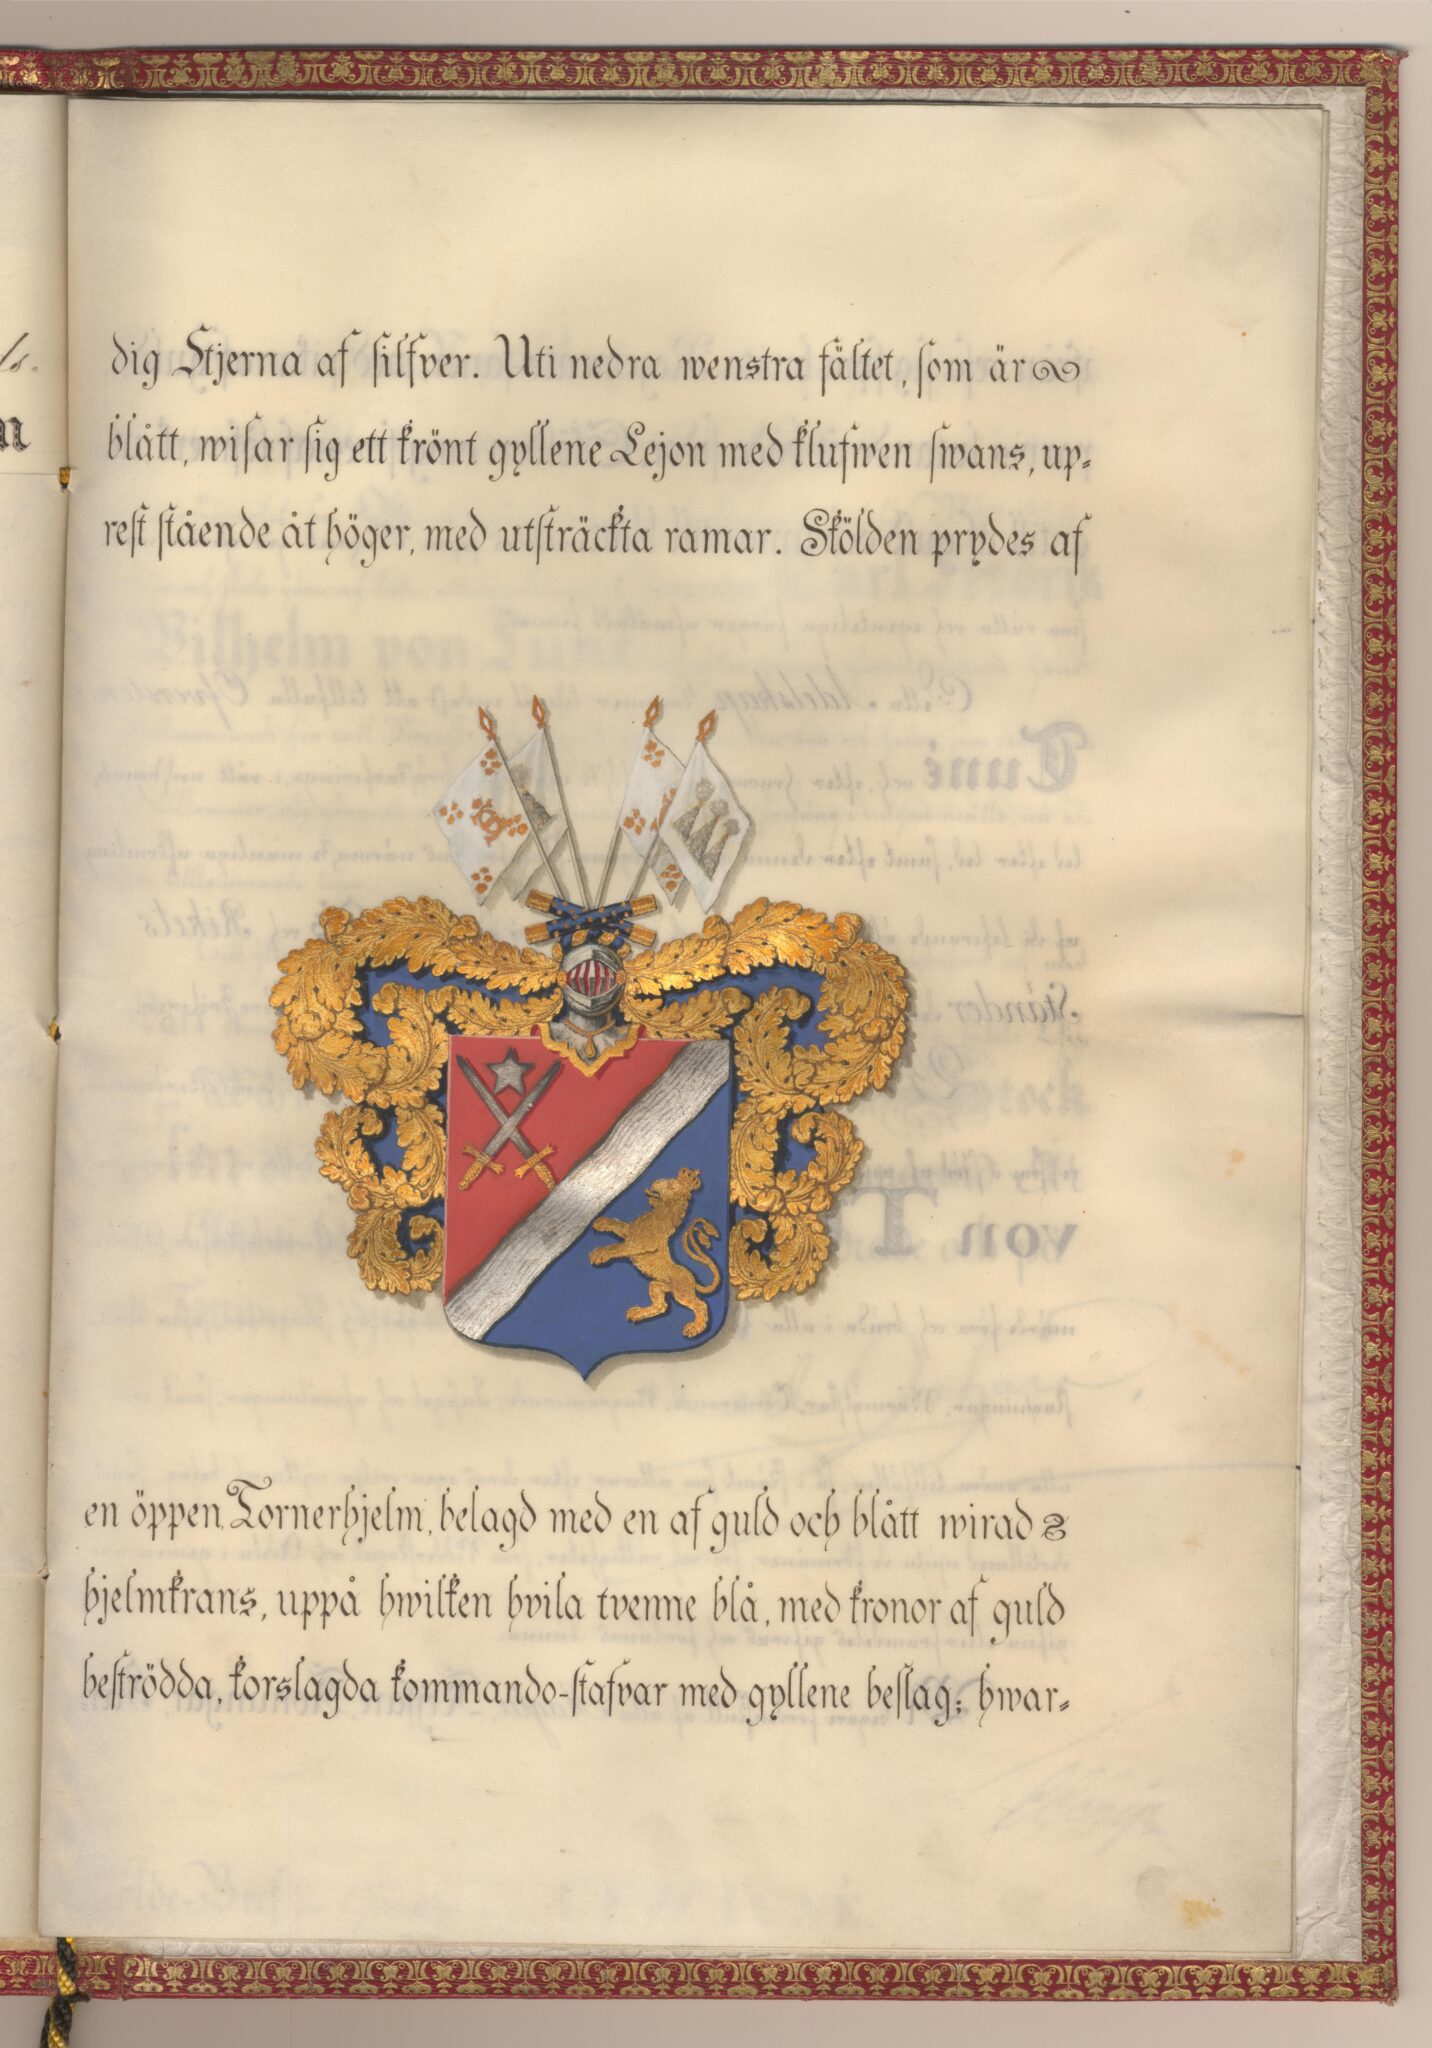 dig Stjerna af silfver. Uti nedra wenstra fältet, som är
blått, wisar sig ett krönt gyllene Lejon med klufwen swans, up=
rest stående åt höger, med utsträckta ramar. Skölden prydes af
en öppen Tornerhjelm, belagd med en af guld och blått wirad
hjelmkrans, uppå hwilken hvila tvenne blå, med kronor af guld
beströdda, korslagda kommando-stafvar med gyllene beslag; hwar=